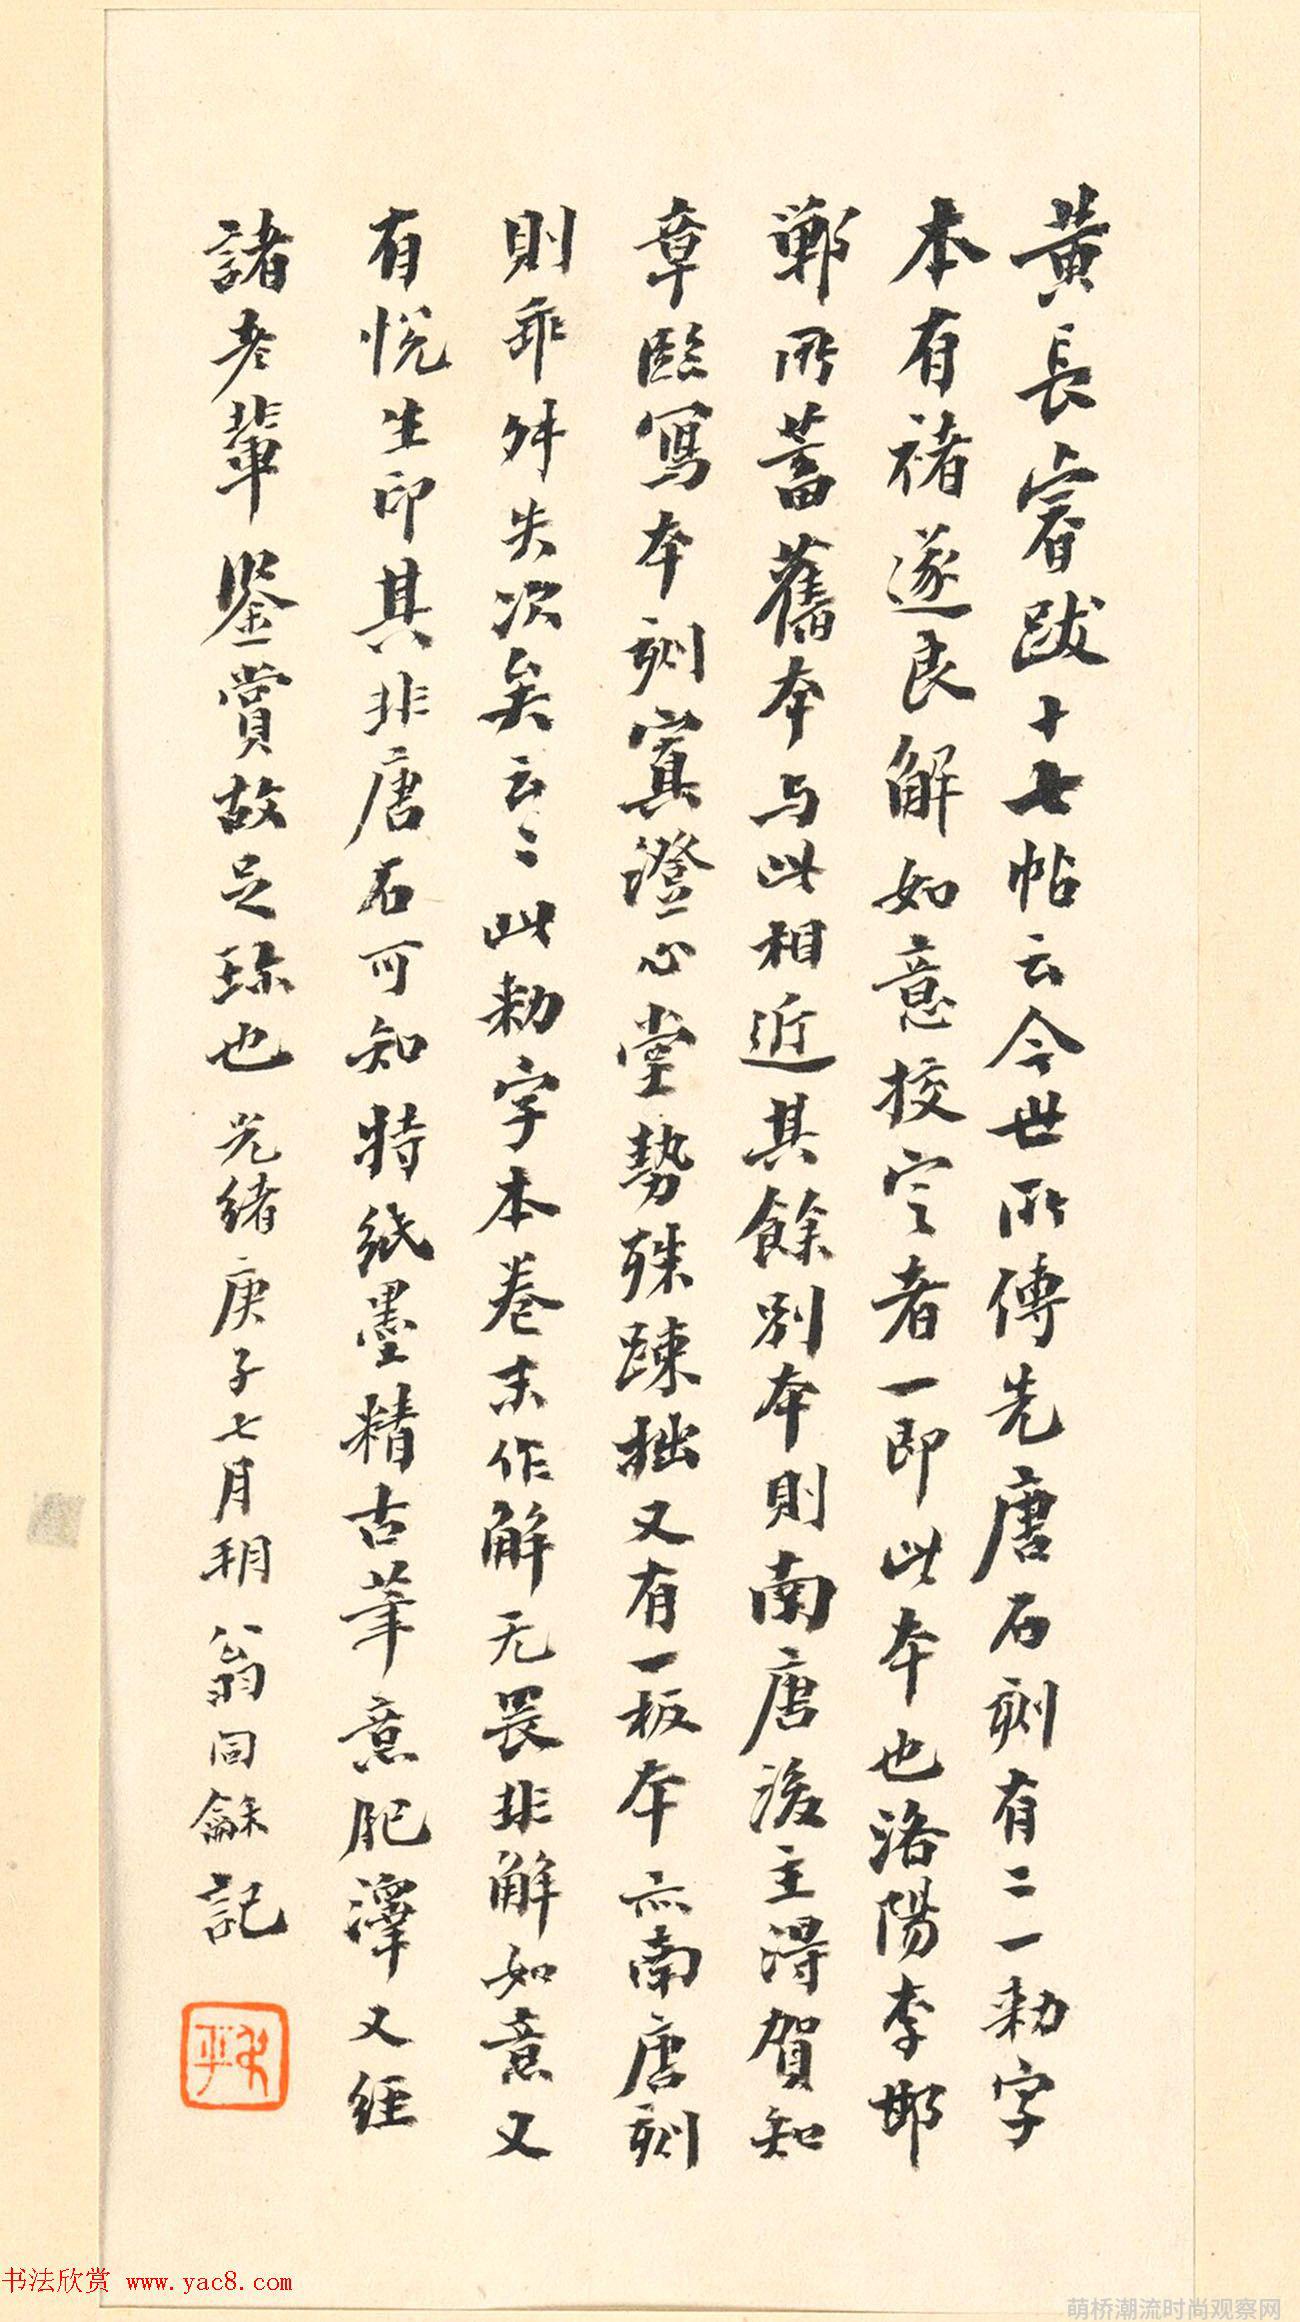 黄長睿跋十七帖云今世所傳先唐石刻有二一勅字
本有褚遂良解如意挍定者一即此本也洛陽李邯
鄲所蓄舊本与此相近其餘別本則南唐後主得賀知
章臨寫本刻寘澄心堂勢殊疎拙又有一板本亦南唐刻
則乖舛失次矣云〻此勅字本卷末作解无畏非解如意又
有悦生印其非唐石可知特紙墨精古筆意肥渾又經
諸老輩鑒賞故足珎也 光緒庚子七月朔 翁同龢記
书法欣赏 www.yac8.com
萌桥潮流时尚观察网